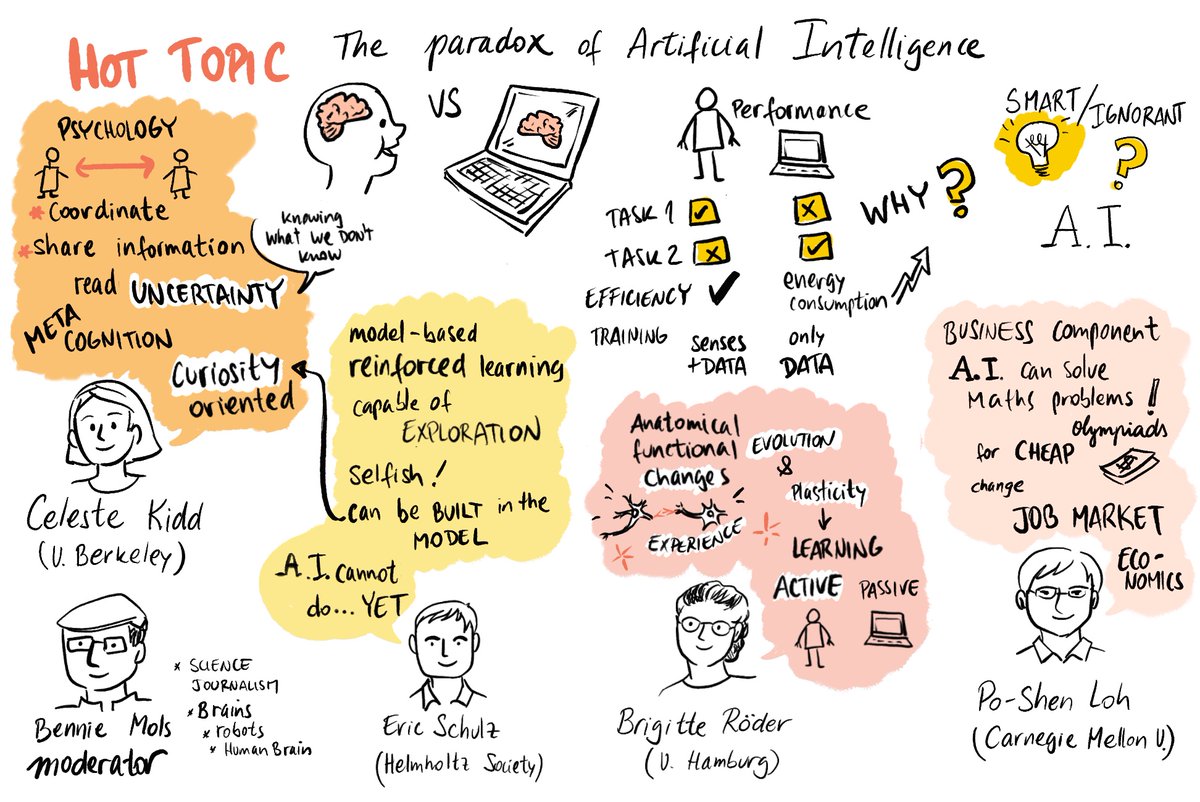 HOT TOPIC
The paradox of Artificial Intelligence
PSYCHOLOGY
* Coordinate
* share information
read UNCERTAINTY
META
COGNITION
Curiosity
oriented
knowing
what we DON'T
know
Celeste Kidd
(U. Berkeley)
VS
Performance
TASK 1
TASK 2
EFFICIENCY
energy
consumption
TRAINING
senses
+DATA
only
DATA
WHY ?
SMART/IGNORANT
?
A.I.
model-based
reinforced learning
capable of
EXPLORATION
Selfish!
can be BUILT in the
MODEL
A.I. cannot
do... YET
Eric Schulz
(Helmholtz Society)
Anatomical
functional
changes
EXPERIENCE
EVOLUTION
&
Plasticity
LEARNING
ACTIVE
PASSIVE
Brigitte Röder
(U. Hamburg)
BUSINESS component
A.I. can solve
Maths problems!
Olympiads
for CHEAP
$
change
JOB MARKET
ECO-
NOMICS
Po-Shen Loh
(Carnegie Mellon U.)
Bennie Mols
moderator
* SCIENCE
JOURNALISM
* Brains
* robots
* Human Brain